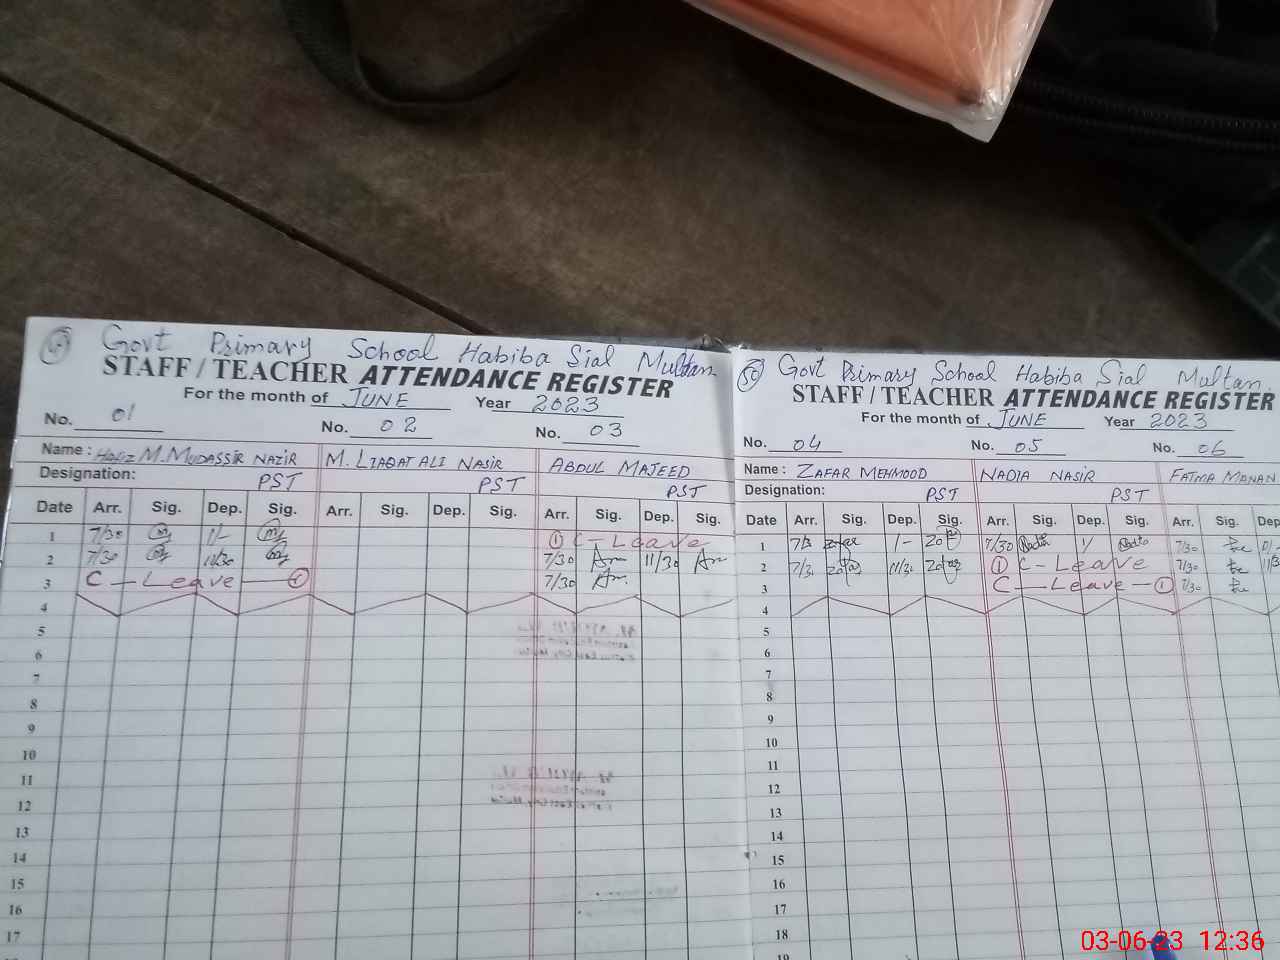 Govt Primary School Habiba Sial Multan
STAFF / TEACHER ATTENDANCE REGISTER
For the month of JUNE Year 2023
No. 01 No. 02 No. 03
Name : Hafiz M. MUDASSIR NAZIR M. LIAQAT ALI NASIR ABDUL MAJEED
Designation: PST PST PST
Date Arr. Sig. Dep. Sig. Arr. Sig. Dep. Sig. Arr. Sig. Dep. Sig.
1 7/30 1/- ① C-Leave
2 7/30 11/30 7/30 Am 11/30 Am
3 C-Leave 7/30 Am
4
5
6
7
8
9
10
11
12
13
14
15
16
17
50 Govt Primary School Habiba Sial Multan
STAFF / TEACHER ATTENDANCE REGISTER
For the month of JUNE Year 2023
No. 04 No. 05 No. 06
Name : ZAFAR MEHMOOD NADIA NASIR FATMA MANAN
Designation: PST PST
Date Arr. Sig. Dep. Sig. Arr. Sig. Dep. Sig. Arr. Sig. Dep
1 1/- 7/30 1/ 7/30
2 11/30 ① C-Leave 7/30
3 C-Leave-① 7/30
4
5
6
7
8
9
10
11
12
13
14
15
16
17
18
03-06-23 12:36